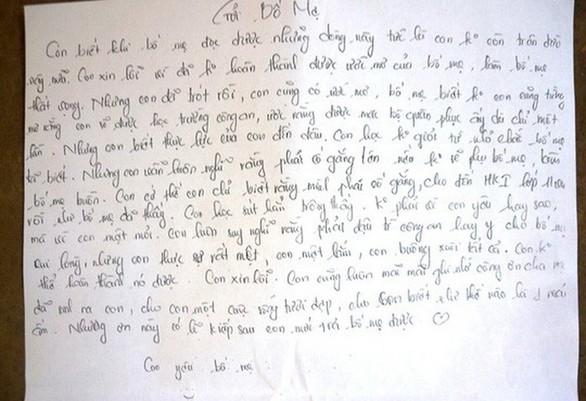 Gửi Bố Mẹ
Con biết khi bố mẹ đọc được những dòng này tức là con ko còn trên đời
này nữa. Con xin lỗi vì đã ko hoàn thành được ước mơ của bố mẹ, làm bố mẹ
thất vọng. Nhưng con đã trót rồi, con cũng có ước mơ, bố mẹ biết ko con cũng từng
mơ rằng con sẽ được học trường công an, ước rằng được mặc bộ quân phục ấy dù chỉ một
lần. Nhưng con biết thực lực của con đến đâu. Con học ko giỏi từ nhỏ chắc bố mẹ
đã biết. Nhưng con vẫn luôn nghĩ rằng phải cố gắng lên nếu ko sẽ phụ bố mẹ, làm
bố mẹ buồn. Con có thể con chỉ biết rằng mình phải cố gắng, cho đến HKI lớp 11
rồi như bố mẹ đã thấy. Con học sút hẳn trông thấy. Ko phải vì con yêu hay sao,
mà vì con mệt mỏi. Con luôn suy nghĩ rằng phải đậu trường công an hay y cho bố mẹ
vui lòng, nhưng con thực sự rất mệt, con mệt lắm, con buông xuôi tất cả. Con ko
thể hoàn thành nó được. Con xin lỗi. Con cũng luôn mãi mãi ghi nhớ công ơn cha mẹ
đã sinh ra con, cho con một cuộc sống tươi đẹp, cho con biết như thế nào là 1 mái
ấm. Nhưng ơn này có lẽ kiếp sau con mới trả bố mẹ được ♡
Con yêu bố mẹ